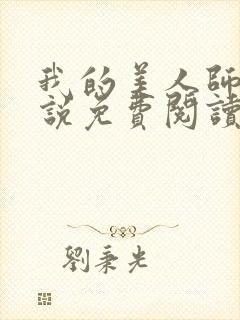 我的美人師
說免費閱讀
劉秉光